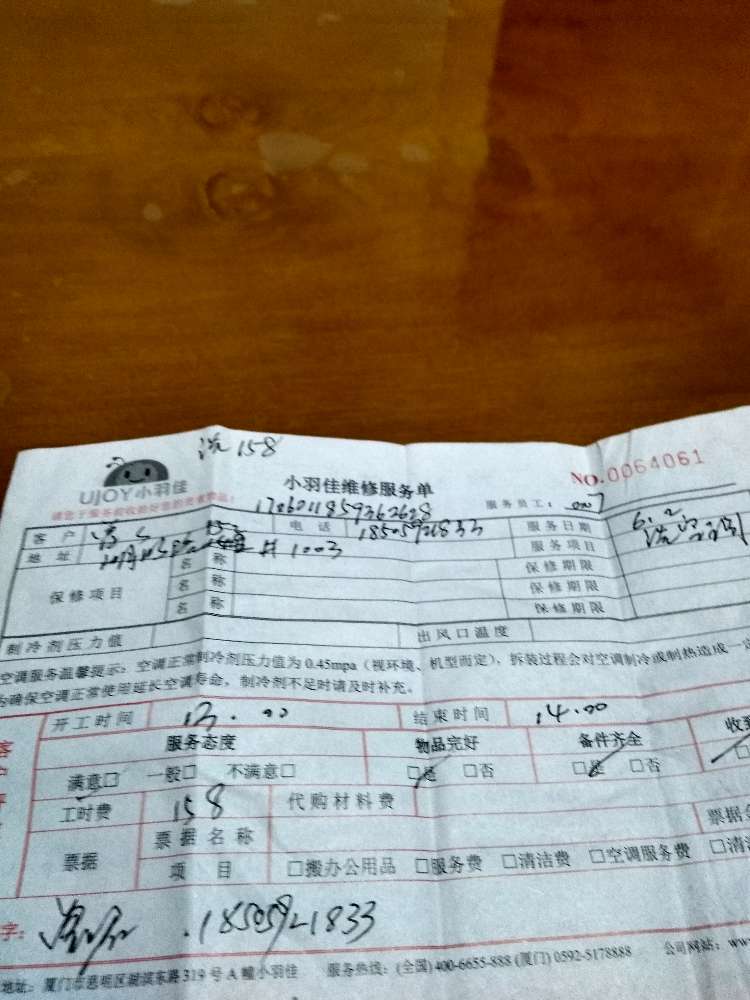 洗 158
UJOY小羽佳
小羽佳维修服务单
NO.0064061
1706011859362628
服务员工:
客户
电话 18505921833
服务日期 6.2
地址 1003
服务项目 洗空调
保修项目
名称 保修期限
名称 保修期限
名称 保修期限
制冷剂压力值 出风口温度
空调服务温馨提示:空调正常制冷剂压力值为0.45mpa(视环境、机型而定),拆装过程会对空调制冷或制热造成一
为确保空调正常使用延长空调寿命,制冷剂不足时请及时补充。
开工时间 13.00 结束时间 14.00
服务态度 物品完好 备件齐全 收到
满意□ 一般□ 不满意□ □是 □否 □是 □否
工时费 158 代购材料费
票据 票据名称
项目 □搬办公用品 □服务费 □清洁费 □空调服务费
字: 18505921833
地址:厦门市思明区湖滨东路319号A幢小羽佳 服务热线:(全国)400-6655-888(厦门)0592-5178888 公司网站:www